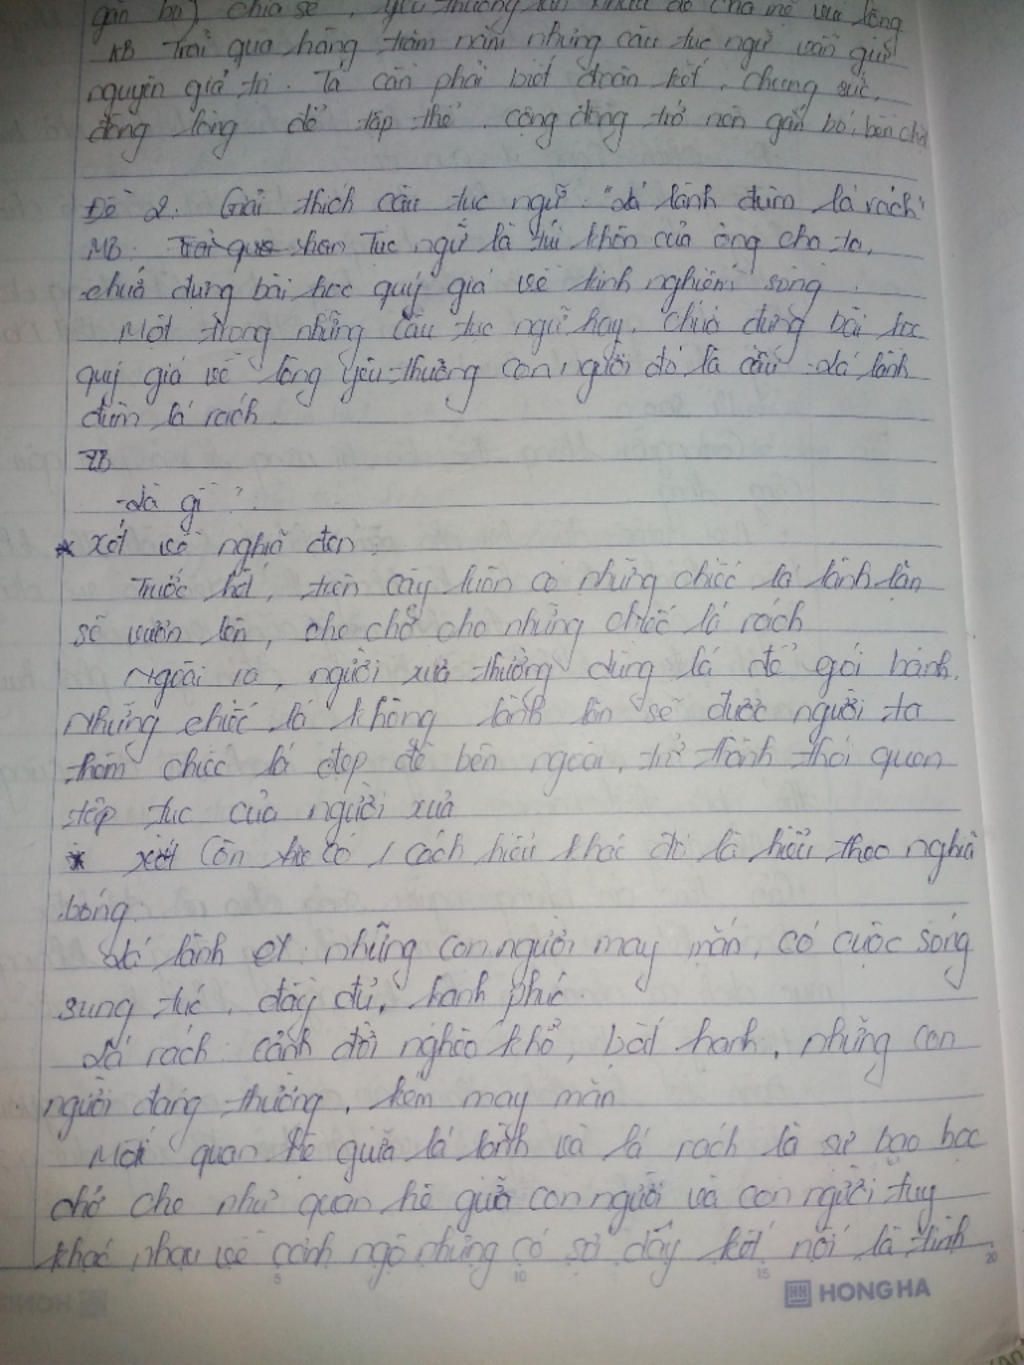 gắn bó, chia sẻ, yêu thương lẫn nhau để cha mẹ vui lòng
KB Trải qua hàng trăm năm những câu tục ngữ vẫn giữ
nguyên giá trị. Ta cần phải biết đoàn kết, chung sức,
đồng lòng để tập thể, cộng đồng trở nên gắn bó, bền chặt
Đề 2: Giải thích câu tục ngữ "Lá lành đùm lá rách"
MB: Trải qua Tục ngữ là túi khôn của ông cha ta,
chứa đựng bài học quý giá về kinh nghiệm sống.
Một trong những câu tục ngữ hay, chứa đựng bài học
quý giá về lòng yêu thương con người đó là câu Lá lành
đùm lá rách.
TB
-Là gì?
* Xét về nghĩa đen:
Trước hết, trên cây luôn có những chiếc lá lành lặn
sẽ vươn lên, che chở cho những chiếc lá rách
Ngoài ra, người xưa thường dùng lá để gói bánh.
Những chiếc lá không lành lặn sẽ được người ta
thêm chiếc lá đẹp đẽ bên ngoài, trở thành thói quen
tập tục của người xưa
* xét Còn có 1 cách hiểu khác đó là hiểu theo nghĩa
bóng:
Lá lành : những con người may mắn, có cuộc sống
sung túc, đầy đủ, hạnh phúc.
Lá rách cảnh đời nghèo khổ, bất hạnh, những con
người đáng thương, kém may mắn
Mối quan hệ giữa lá lành và lá rách là sự bao bọc
chở che như quan hệ giữa con người và con người tuy
khác nhau về cảnh ngộ nhưng có sợi dây kết nối là tình
5 10 15 20
HH HONG HA